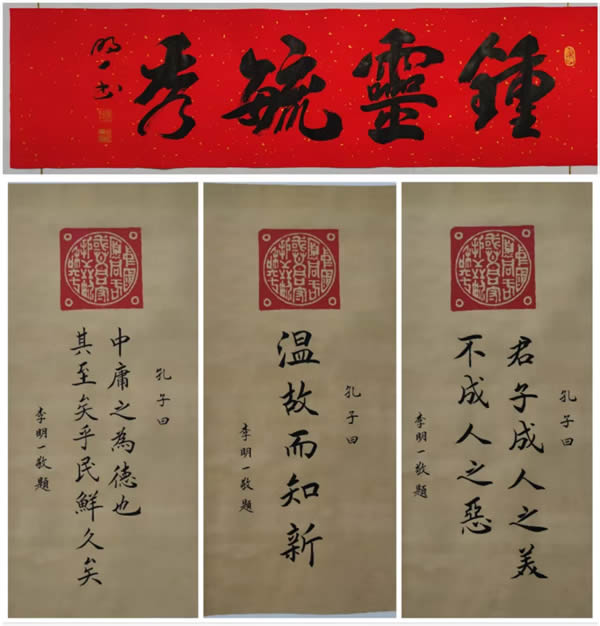 鍾靈毓秀
明一书
孔子曰
中庸之為德也
其至矣乎民鮮久矣
李明一敬題
孔子曰
温故而知新
李明一敬題
孔子曰
君子成人之美
不成人之惡
李明一敬題